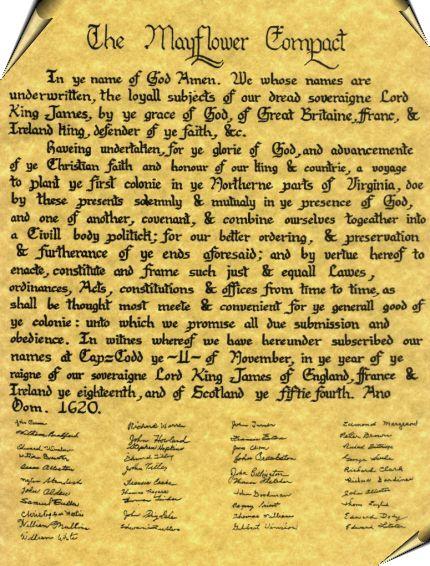 The Mayflower Compact
In ye name of God Amen. We whose names are
underwritten, the loyall subjects of our dread soveraigne Lord
King James, by ye grace of God, of Great Britaine, ffranc, &
Ireland king, defender of ye faith, &c.
Haveing undertaken, for ye glorie of God, and advancemente
of ye Christian faith and honour of our king & countrie, a voyage
to plant ye first colonie in ye Northerne parts of Virginia, doe
by these presents solemnly & mutualy in ye presence of God,
and one of another, covenant, & combine ourselves togeather into
a Civill body politick; for our better ordering, & preservation
& furtherance of ye ends aforesaid; and by vertue hereof to
enacte, constitute and frame such just & equall Lawes,
ordinances, Acts, constitutions & offices from time to time, as
shall be thought most meete & convenient for ye generall good of
ye colonie: unto which we promise all due submission and
obedience. In witnes whereof we have hereunder subscribed our
names at Cap=Codd ye ~11~ of November, in ye year of ye
raigne of our soveraigne Lord King James of England, ffrance &
Ireland ye eighteenth, and of Scotland ye fiftie fourth. Ano
Dom. 1620.
William Bradford
Edward Winslow
William Brewster
Isaac Allerton
John Alden
Samuel Fuller
William Mullins
William White
Richard Warren
John Howland
Stephen Hopkins
John Tilley
Francis Cooke
Thomas Rogers
John Rigdale
John Turner
Francis Eaton
John Crackston
John Billington
John Goodman
Thomas Williams
Gilbert Winslow
Edmund Margeson
Peter Brown
Richard Clark
Richard Gardiner
John Allerton
Edward Doty